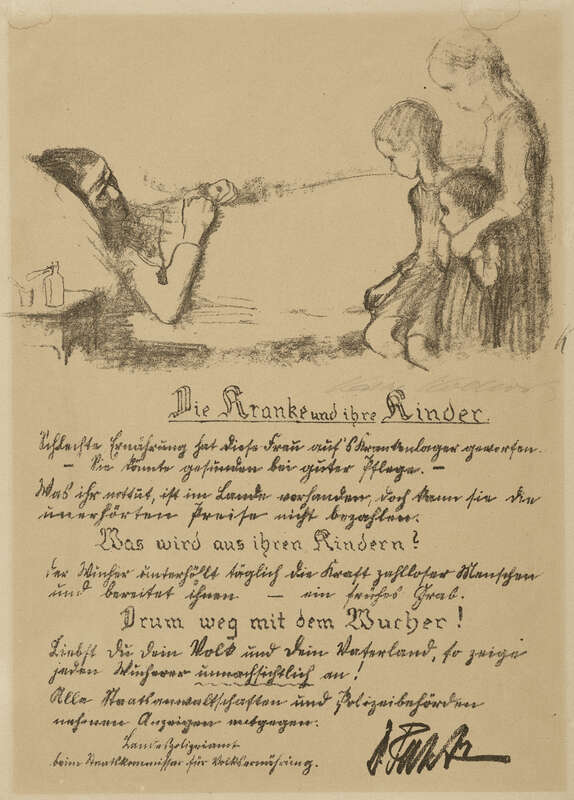 Die Kranke und ihre Kinder.
Schlechte Ernährung hat diese Frau auf's Krankenlager geworfen.
– Sie könnte gesunden bei guter Pflege. –
Was ihr nottut, ist im Lande vorhanden, doch kann sie die
unerhörten Preise nicht bezahlen.
Was wird aus ihren Kindern?
Der Wucher unterhöhlt täglich die Kraft zahlloser Menschen
und bereitet ihnen – ein frühes Grab.
Drum weg mit dem Wucher!
Liebst Du Dein Volk und Dein Vaterland, so zeige
jeden Wucherer unnachsichtlich an!
Alle Staatsanwaltschaften und Polizeibehörden
nehmen Anzeigen entgegen.
Landespolizeiamt
beim Staatskommissar für Volksernährung.